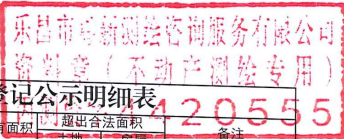 乐昌市粤新测绘咨询服务有限公司
资料章(不动产测绘专用)
登记公示明细表
4420555
面积
超出合法面积
备注
土地
房屋